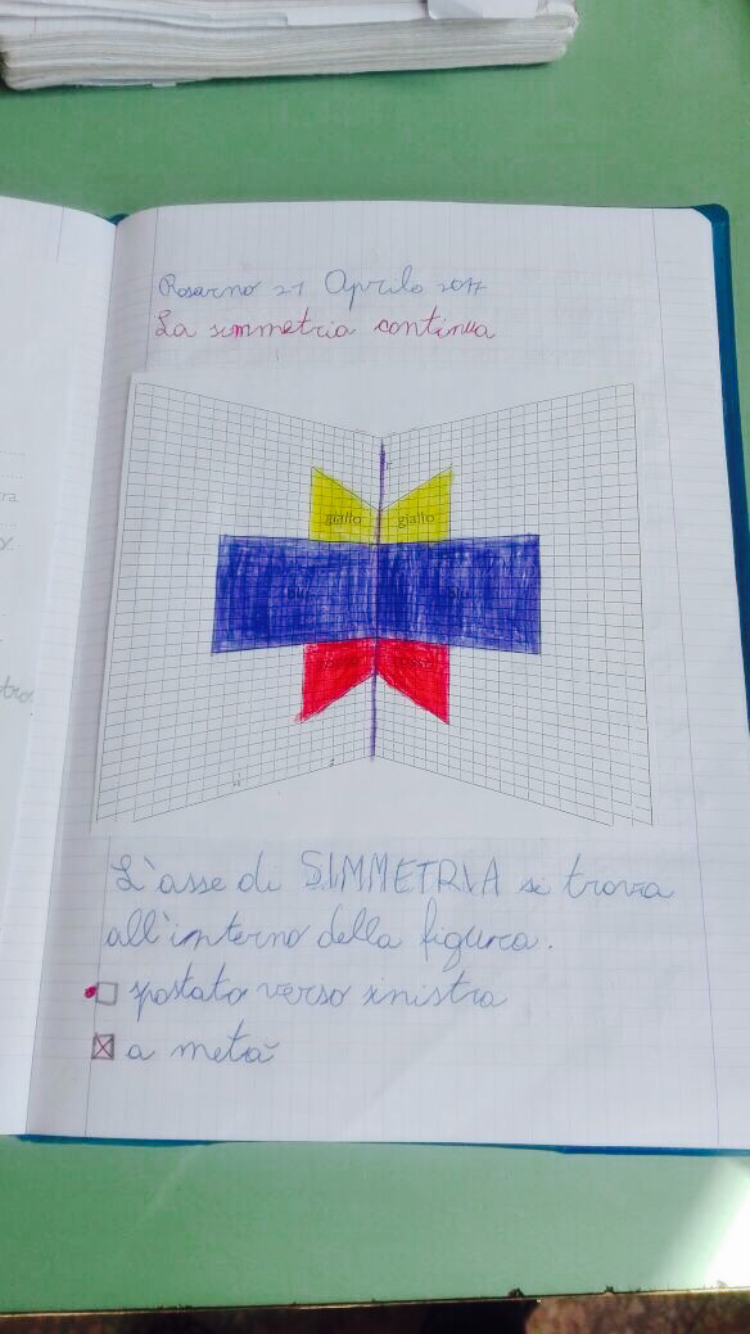 Rosarno 21 Aprile 2017
La simmetria continua
giallo giallo
blu blu
rosso rosso
L'asse di SIMMETRIA si trova
all'interno della figura.
spostato verso sinistra
a metà